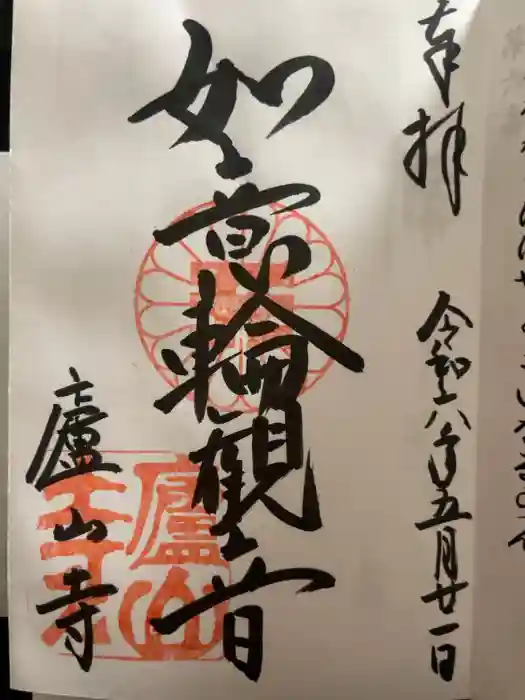 奉拝
令和六年五月廿一日
如意輪観音
廬山寺
廬山寺